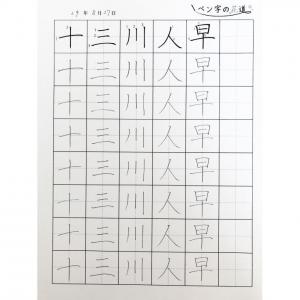 29年8月27日
ペン字の花道
十三川人早
十三川人早
十三川人早
十三川人早
十三川人早
十三川人早
十三川人早
十三川人早